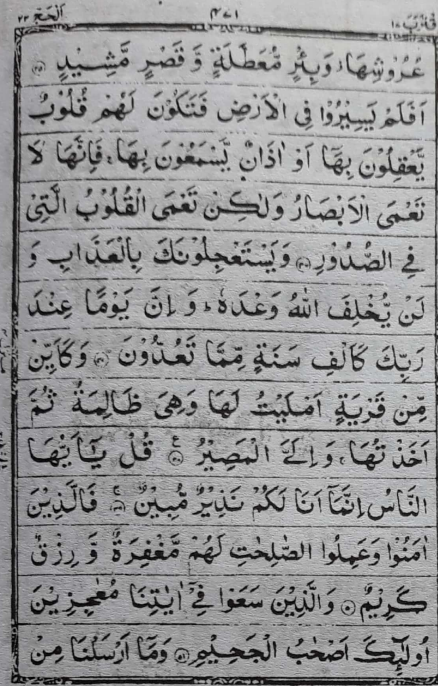 اقترب ١٧ ٤٧١ الحج ٢٢
عُرُوْشِهَا وَبِئْرٍ مُّعَطَّلَةٍ وَّ قَصْرٍ مَّشِيْدٍ ﴿٤٥﴾
اَفَلَمْ يَسِيْرُوْا فِى الْاَرْضِ فَتَكُوْنَ لَهُمْ قُلُوْبٌ
يَّعْقِلُوْنَ بِهَآ اَوْ اٰذَانٌ يَّسْمَعُوْنَ بِهَا ۚ فَاِنَّهَا لَا
تَعْمَى الْاَبْصَارُ وَلٰكِنْ تَعْمَى الْقُلُوْبُ الَّتِىْ
فِى الصُّدُوْرِ ﴿٤٦﴾ وَيَسْتَعْجِلُوْنَكَ بِالْعَذَابِ وَ
لَنْ يُّخْلِفَ اللّٰهُ وَعْدَهٗ ؕ وَ اِنَّ يَوْمًا عِنْدَ
رَبِّكَ كَاَلْفِ سَنَةٍ مِّمَّا تَعُدُّوْنَ ﴿٤٧﴾ وَكَاَيِّنْ
مِّنْ قَرْيَةٍ اَمْلَيْتُ لَهَا وَهِىَ ظَالِمَةٌ ثُمَّ
اَخَذْتُهَا ۚ وَ اِلَىَّ الْمَصِيْرُ ﴿٤٨﴾ قُلْ يٰٓاَيُّهَا
النَّاسُ اِنَّمَآ اَنَا لَكُمْ نَذِيْرٌ مُّبِيْنٌ ﴿٤٩﴾ فَالَّذِيْنَ
اٰمَنُوْا وَعَمِلُوا الصّٰلِحٰتِ لَهُمْ مَّغْفِرَةٌ وَّ رِزْقٌ
كَرِيْمٌ ﴿٥٠﴾ وَالَّذِيْنَ سَعَوْا فِىْٓ اٰيٰتِنَا مُعٰجِزِيْنَ
اُولٰٓئِكَ اَصْحٰبُ الْجَحِيْمِ ﴿٥١﴾ وَمَآ اَرْسَلْنَا مِنْ